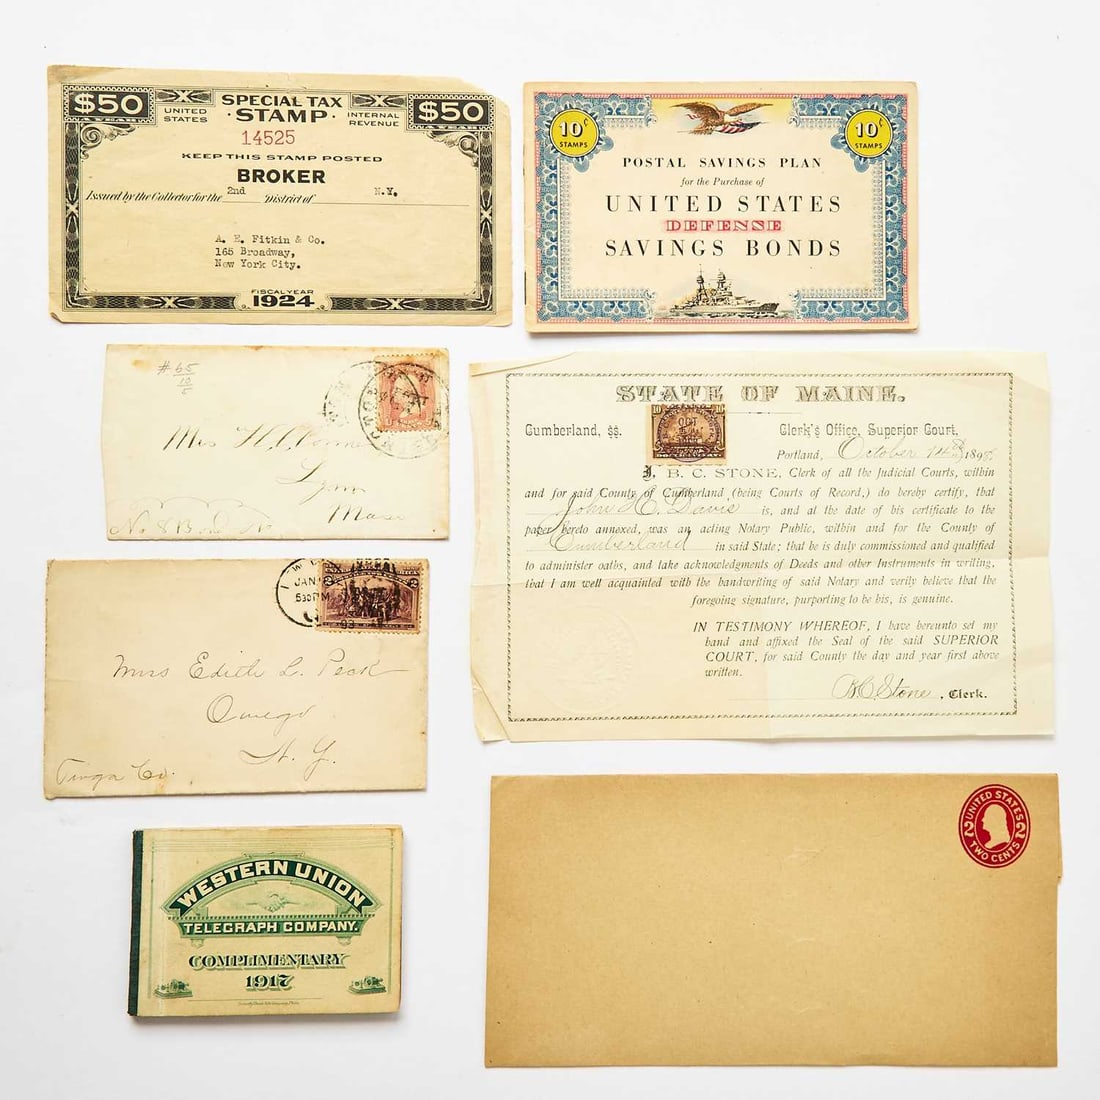 $50
A YEAR
UNITED STATES
SPECIAL TAX STAMP
INTERNAL REVENUE
$50
A YEAR
14525
KEEP THIS STAMP POSTED
BROKER
Issued by the Collector for the 2nd District of N.Y.
A. E. Fitkin & Co.
165 Broadway,
New York City.
FISCAL YEAR
1924
10¢
STAMPS
10¢
STAMPS
POSTAL SAVINGS PLAN
for the Purchase of
UNITED STATES
DEFENSE
SAVINGS BONDS
# 65
10
Mrs H
Lynn
Mass
STATE OF MAINE.
Cumberland, ss.
Clerk's Office, Superior Court,
Portland, October 14th 189
I, B. C. STONE, Clerk of all the Judicial Courts, within
and for said County of Cumberland (being Courts of Record,) do hereby certify, that
John C. Davis is, and at the date of his certificate to the
paper hereto annexed, was an acting Notary Public, within and for the County of
Cumberland in said State; that he is duly commissioned and qualified
to administer oaths, and take acknowledgments of Deeds and other Instruments in writing,
that I am well acquainted with the handwriting of said Notary and verily believe that the
foregoing signature, purporting to be his, is genuine.
IN TESTIMONY WHEREOF, I have hereunto set my
hand and affixed the Seal of the said SUPERIOR
COURT, for said County the day and year first above
written.
B C Stone, Clerk.
JAN
530 PM
93
2
2
Miss Edith L. Peck
Owego
N. Y.
Tioga Co.
WESTERN UNION
TELEGRAPH COMPANY.
COMPLIMENTARY
1917
UNITED STATES
2 2
TWO CENTS